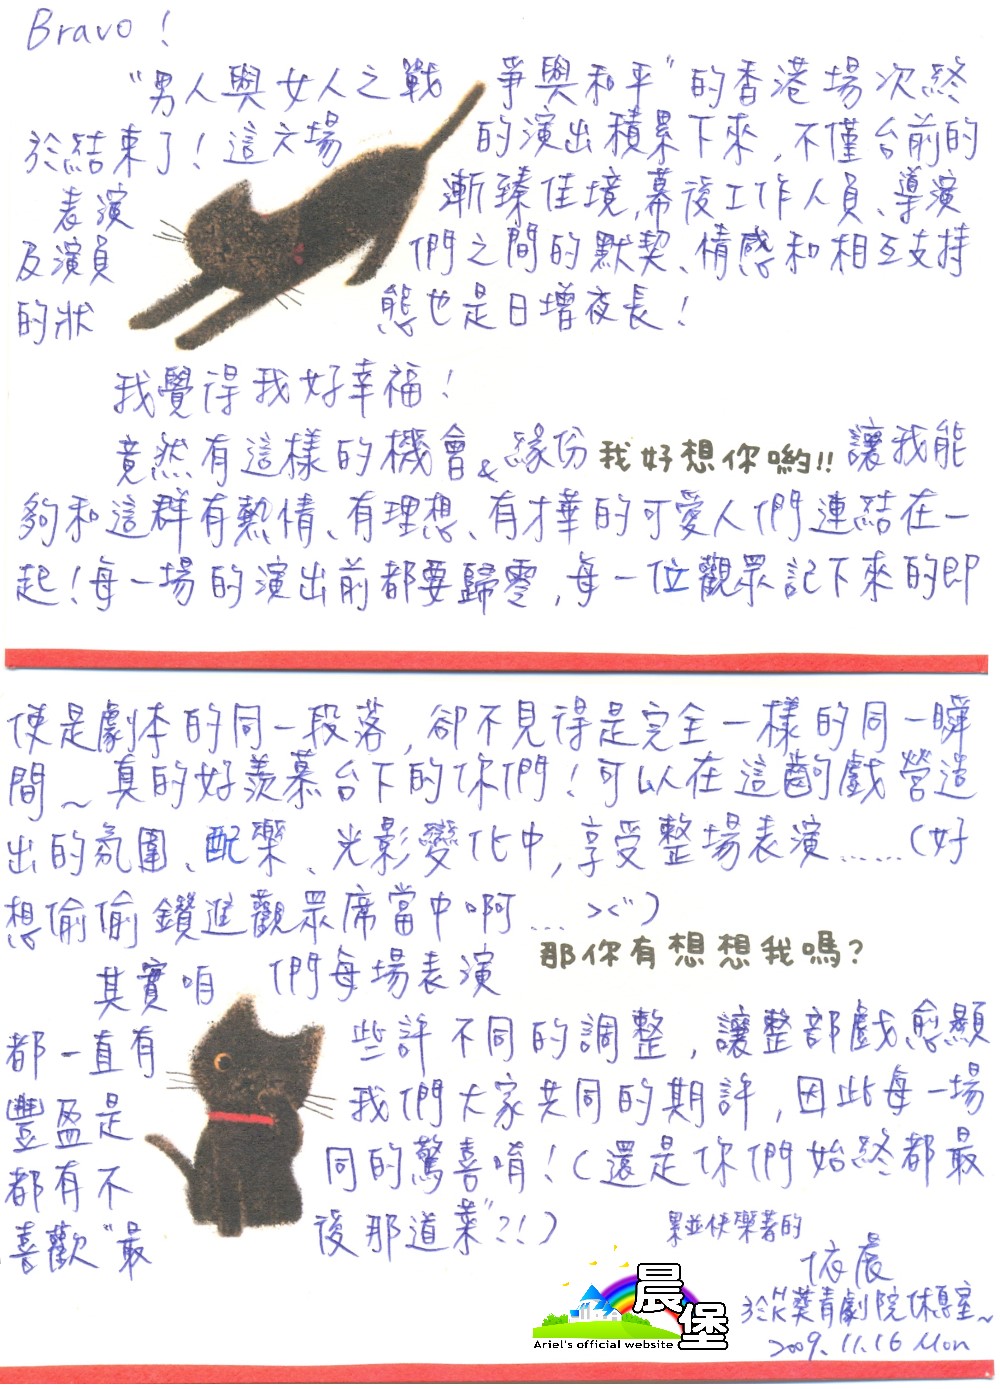 Bravo!
"男人與女人之戰爭與和平"的香港場次終
於結束了!這六場的演出積累下來,不僅台前的
表演漸臻佳境,幕後工作人員、導演
及演員們之間的默契、情感和相互支持
的狀態也是日增夜長!
我覺得我好幸福!
竟然有這樣的機會&緣份 我好想你喲!! 讓我能
夠和這群有熱情、有理想、有才華的可愛人們連結在一
起!每一場的演出前都要歸零,每一位觀眾記下來的即
使是劇本的同一段落,卻不見得是完全一樣的同一瞬
間~真的好羨慕台下的你們!可以在這齣戲營造
出的氛圍、配樂、光影變化中,享受整場表演……(好
想偷偷鑽進觀眾席當中啊… ><")
那你有想想我嗎?
其實咱們每場表演
都一直有些許不同的調整,讓整部戲愈顯
豐盈是我們大家共同的期許,因此每一場
都有不同的驚喜唷!(還是你們始終都最
喜歡"最後那道菜"?!)
累並快樂著的
依晨
於葵青劇院休息室~
2009.11.16 Mon
晨堡
Ariel's official website